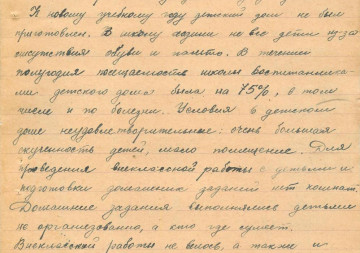 К новому учебному году детский дом не был
приготовлен. В школу ходили не все дети из-за
отсутствия обуви и пальто. В течении
полугодия посещаемость школы воспитанника-
ми детского дома была на 75%, в том
числе и по болезни. Условия в детском
доме неудовлетворительные: очень большая
скученность детей, мало помещение. Для
проведения внеклассной работы с детьми и
подготовки домашних заданий нет комнат.
Домашние задания выполнялись детьми
не организованно, а кто где сумеет.
Внеклассной работы не велось, а также и